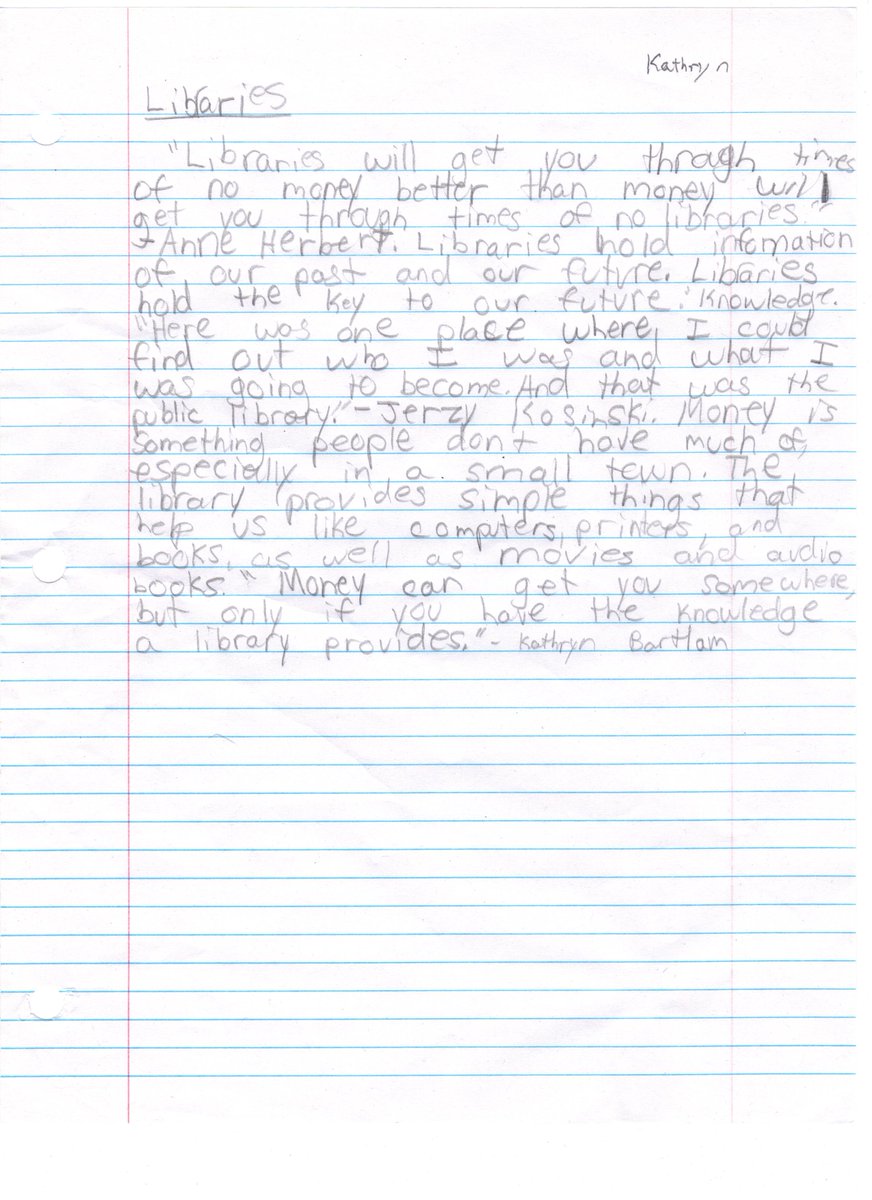 Kathryn
Libraries
"Libraries will get you through times
of no money better than money will
get you through times of no libraries."
-Anne Herbert. Libraries hold infomation
of our past and our future. Libaries
hold the key to our future. Knowledge.
"Here was one place where I could
find out who I was and what I
was going to become. And that was the
public library." - Jerzy Kosinski. Money is
something people don't have much of,
especially in a small town. The
library provides simple things that
help us like computers, printers, and
books, as well as movies and audio
books. "Money can get you somewhere,
but only if you have the knowledge
a library provides." - Kathryn Bartlam